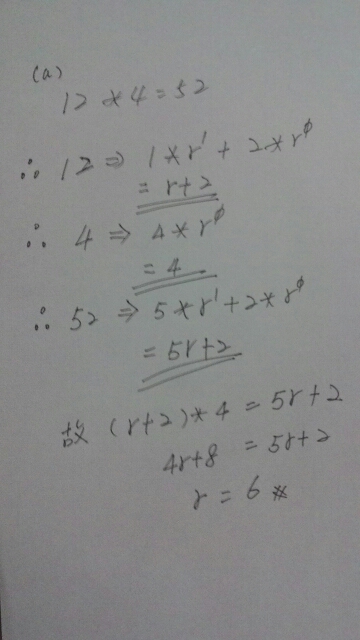 (a)
12 * 4 = 52
∴ 12 ⇒ 1 * r¹ + 2 * r⁰
= r+2
∴ 4 ⇒ 4 * r⁰
= 4
∴ 52 ⇒ 5 * r¹ + 2 * r⁰
= 5r+2
故 (r+2) * 4 = 5r+2
4r+8 = 5r+2
r = 6 #